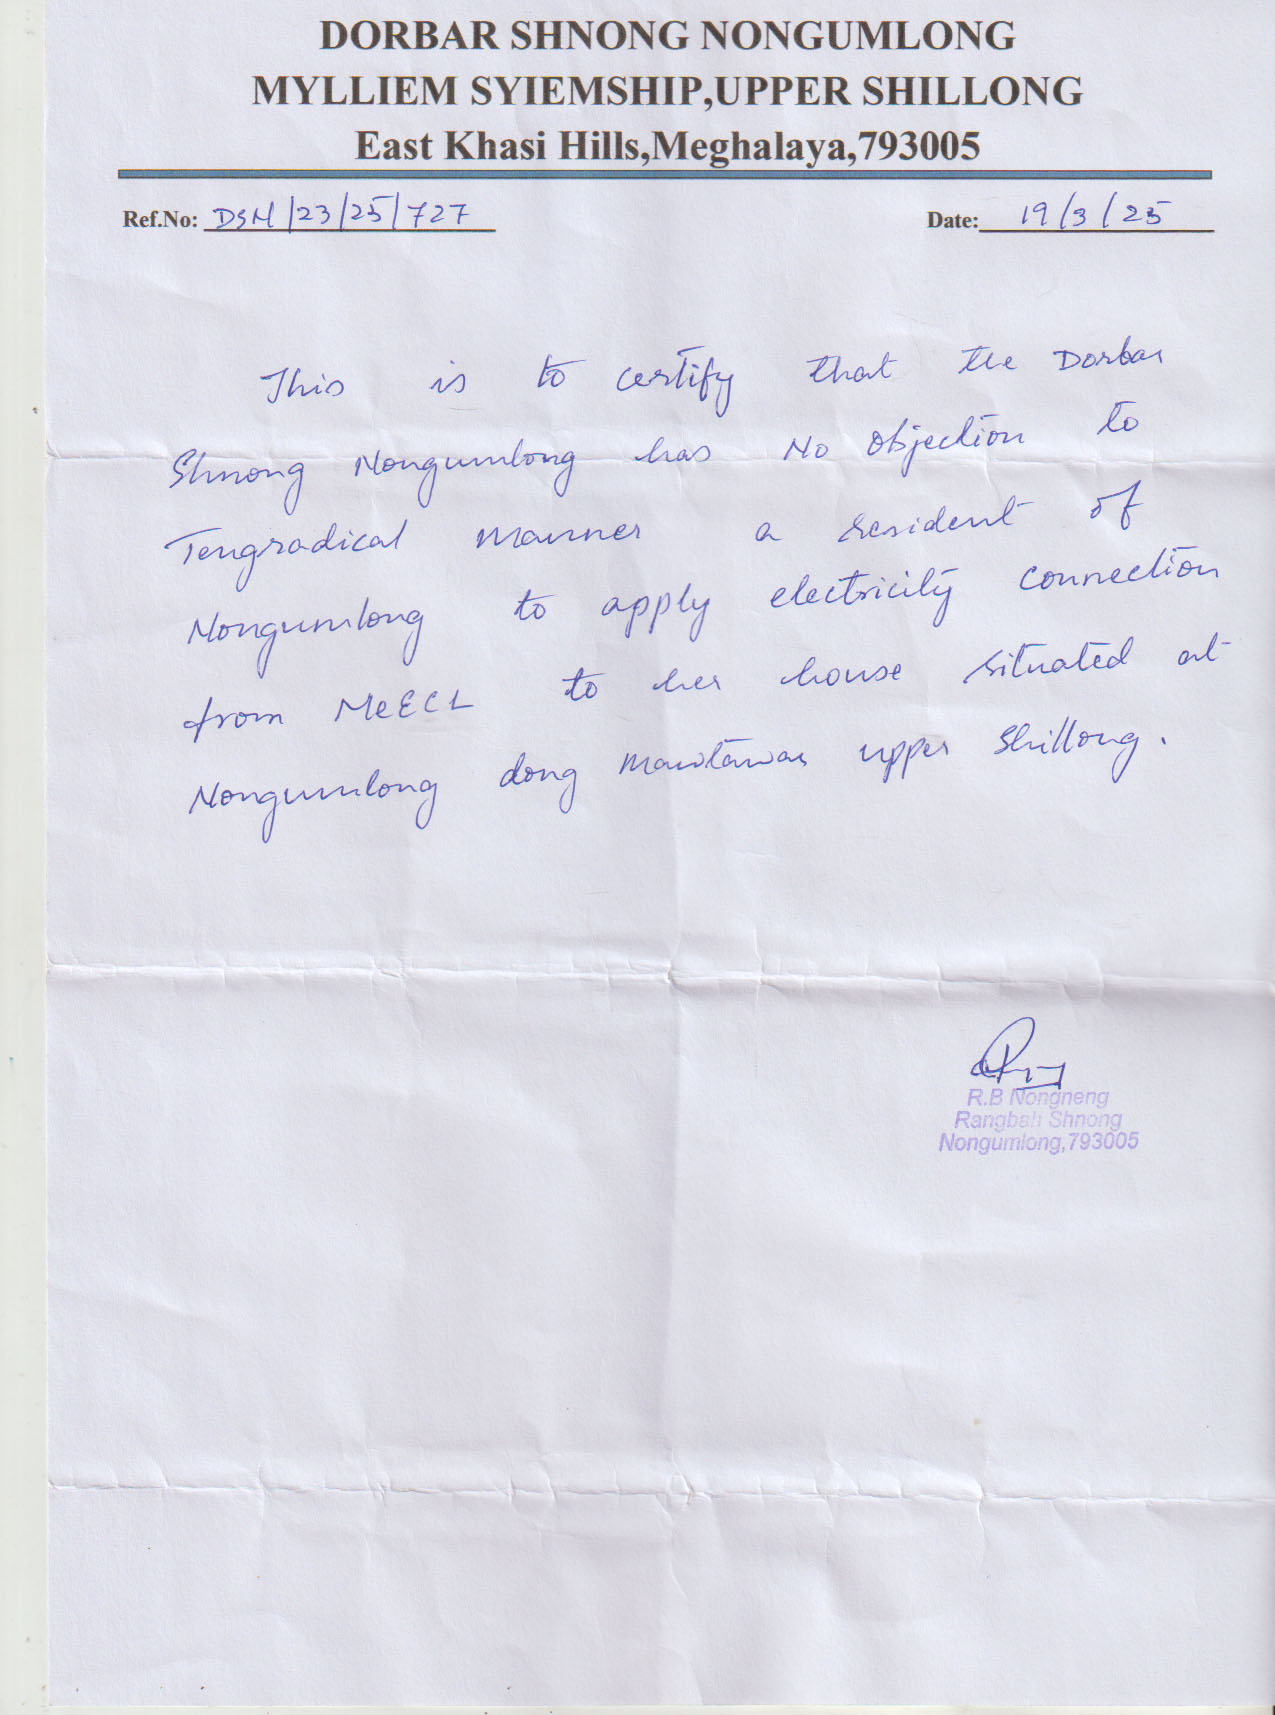 DORBAR SHNONG NONGUMLONG
MYLLIEM SYIEMSHIP,UPPER SHILLONG
East Khasi Hills,Meghalaya,793005
Ref.No: DSN/23/25/727 Date: 19/3/25
This is to certify that the Dorbar
Shnong Nongumlong has No objection to
Tengradical Manner a resident of
Nongumlong to apply electricity connection
from MeECL to her house situated at
Nongumlong dong Mawtawar upper Shillong.
R.B Nongneng
Rangbah Shnong
Nongumlong,793005